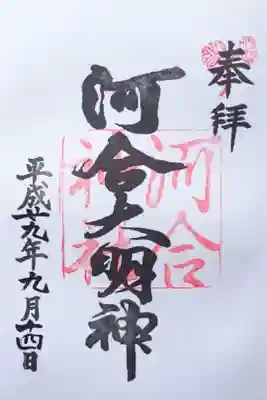 奉拝
河合大明神
河合
神社
平成廿九年九月十四日